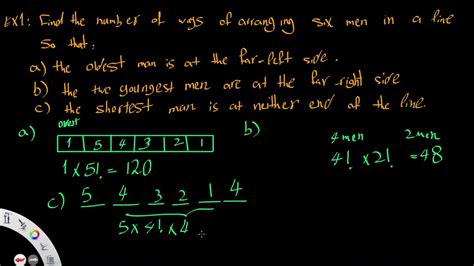 EX1: Find the number of ways of arranging six men in a line
so that:
a) the oldest man is at the far-left side.
b) the two youngest men are at the far-right side
c) the shortest man is at neither end of the line.
a)
oldest
1 5 4 3 2 1
1 x 5! = 120
b)
4 men 2 men
4! x 2! = 48
c) 5 4 3 2 1 4
5 x 4! x 4